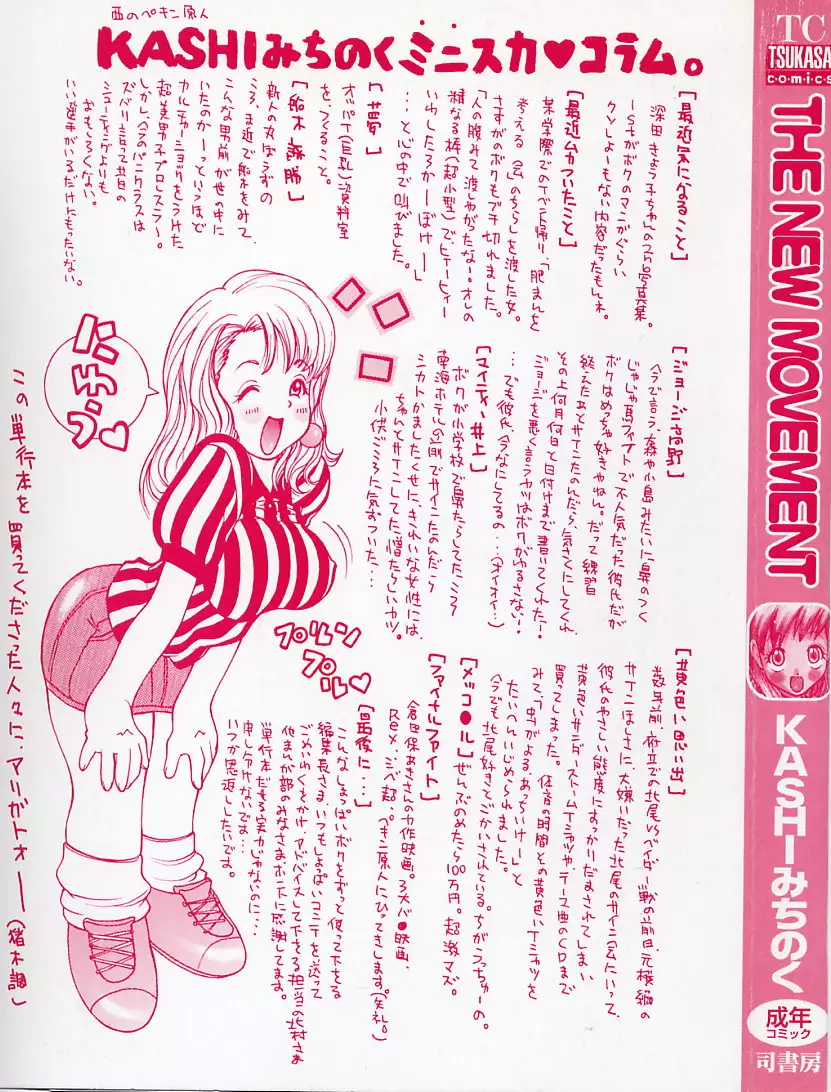 西のペキン原人
KASHIみちのくミニスカ♥コラム。
[最近気になること]
深田きょう子ちゃんの2nd写真集。
1stがボクのマンガぐらい
クソしょーもない内容だったもんネ。
[最近ムカついたこと]
某学際でのイベント帰り、「肥まんを
考える会」のちらしを渡した女。
さすがのボクもブチ切れました。
「人の腹みて渡しやがたな!オレの
精なる棒(超小型)で、ヒィーヒィー
いわしたろかーぼけー」
…と心の中で叫びました。
[昔の夢]
オッパイ(巨乳)資料室
を、つくること。
[船木誠勝]
新人の丸ぼうずの
ころ、ま近で船木をみて、
こんな男前が世の中に
いたのかーっというほど
カルチャーショックをうけた
超美男子プロレスラー。
しかし、今のパンクラスは
ズバリ言って昔の
シューティングよりも
おもしろくない。
いい選手がいるだけにもったいない。
[ジョージ高野]
今で言う、森や小島みたいに鼻のつく
じゃじゃ馬ファイトで不人気だった彼氏だが
ボクはめっちゃ好きやねん。だって練習
終えたあとサインたのんだら、気さくにしてくれ
その上何月何日と日付けまで書いてくれたー!
ジョージを悪く言うヤツはボクがゆるさない!
…でも彼氏、今なにしてるの…(オイオイ…)
[マイティ・井上]
ボクが小学校で鼻たらしてたころ
南海ホテル(金剛)でサインたのんだら
シカトかましたくせに、きれいな女性には、
ちゃんとサインしてた憎たらしいヤツ。
小供ごころに気ずついた…
[黄色い思い出]
数年前、府立での北尾VSベイダー戦の前日、元横綱の
サインほしさに、大嫌いだった北尾のサイン会にいって、
彼氏のやさしい態度にすっかりだまされてしまい
黄色いサンダーストームTシャツやテーマ曲のCDまで
買ってしまった。体育の時間その黄色いTシャツを
みて、「虫がよる、あっちいけー!」と
たいへんいじめられました。
今でも北尾好きとごかいされている。ちがうっちゅーの。
[メッコ●ル]ぜんぶのめたら100万円。超激マズ。
[ファイナルファイト]
倉田保あきさんの力作映画。3大バ●映画、
REX、シベ超、ペキン原人にひってきします。(失礼。)
[最後に…]
こんなしょっぱいボクをずっと使って下さる
編集長さま、いつもしょっぱいコミテを送って
ごめいわくをかけ、アドバイスして下さる担当の北村さま
他まんが部のみなさま、ホントに感謝してます。
単行本だせる実力じゃないのに…
申しわけないです…
いつか恩返ししたいです。
ハニャ〜ン♡
プルルン
プル♡
この単行本を買ってくださった人々に、アリガトォーー(猪木調)
TC
TSUKASA
comics
THE NEW MOVEMENT
KASHIみちのく
成年
コミック
司書房